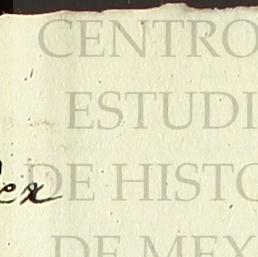 CENTRO
ESTUDI
DE HISTO
ex
DE MEX